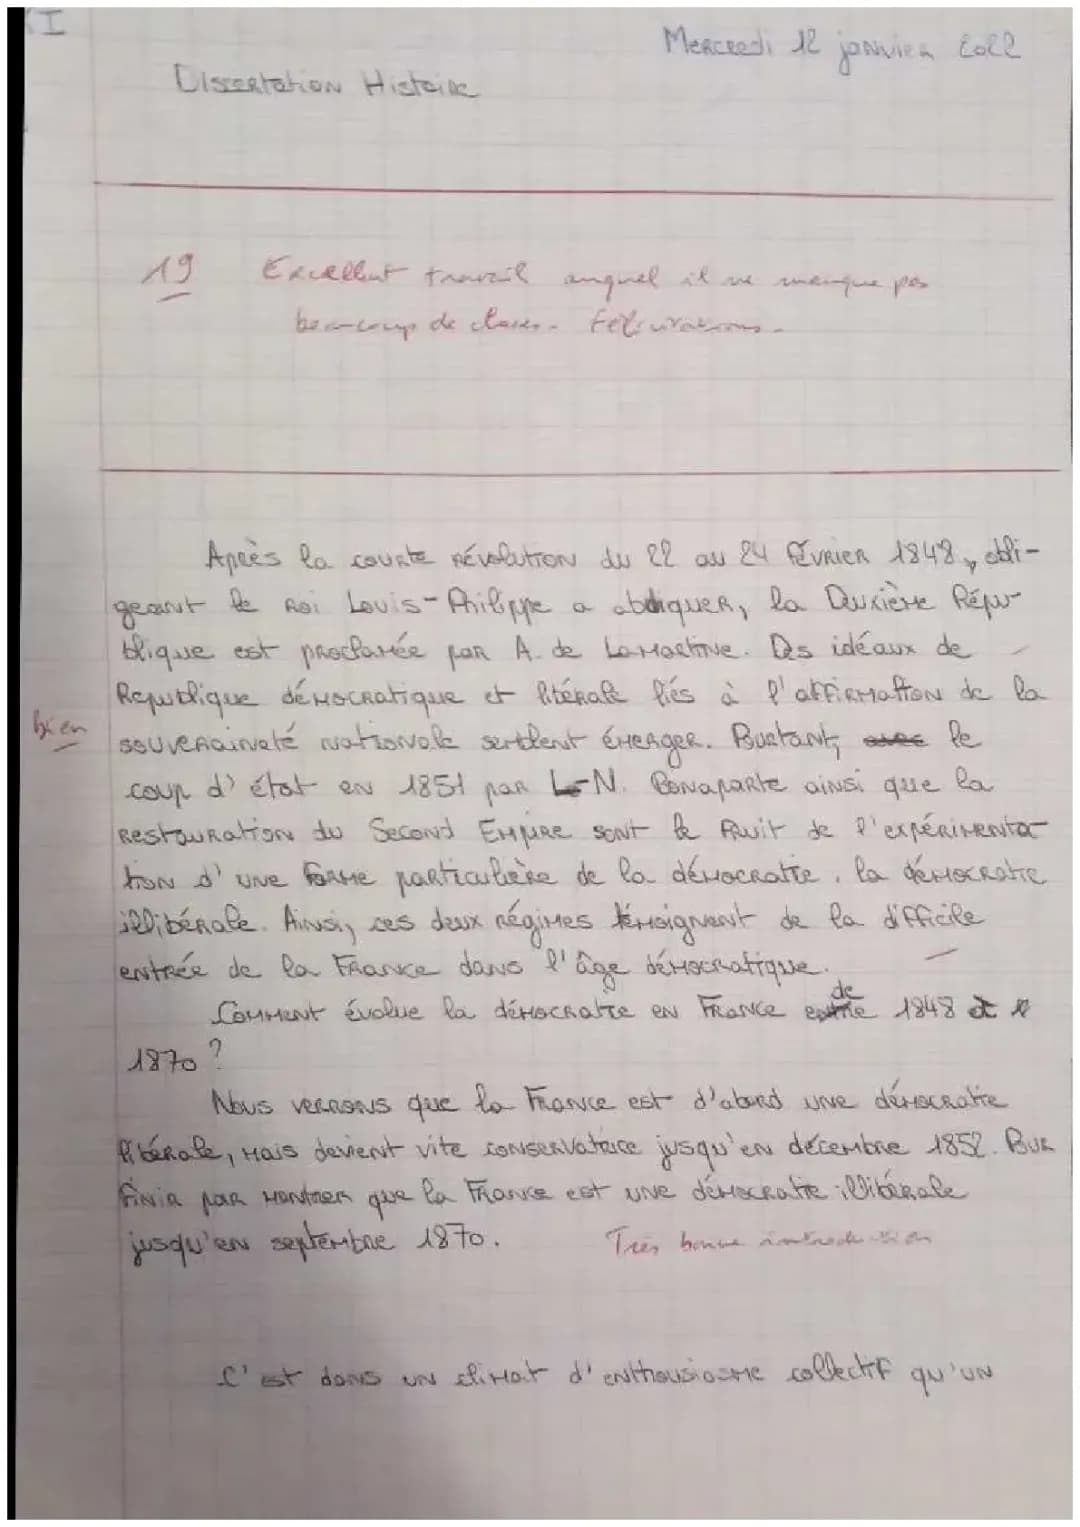 Mercredi 12 janvier 2022
Dissertation Histoire
19 Excellent travail auquel il ne manque pas
beaucoup de choses. Félicitations.
Après la courte révolution du 22 au 24 février 1848, obli-
geant le roi Louis-Philippe a abdiquer, la Deuxième Répu-
blique est proclamée par A. de Lamartine. Des idéaux de
République démocratique et libérale liés à l'affirmation de la
bien
souveraineté nationale semblent émerger. Pourtant, avec le
coup d'état en 1851 par L-N. Bonaparte ainsi que la
restauration du Second Empire sont le fruit de l'expérimenta-
tion d'une forme particulière de la démocratie, la démocratie
illibérale. Ainsi, ces deux régimes témoignent de la difficile
entrée de la France dans l'âge démocratique.
Comment évolue la démocratie en France de 1848
1870 ?
Nous verrons que la France est d'abord une démocratie
libérale, mais devient vite conservatrice jusqu'en décembre 1852. Pour
finir par montrer que la France est une démocratie illibérale
jusqu'en septembre 1870. Très bonne introduction
C'est dans un climat d'enthousiasme collectif qu'un